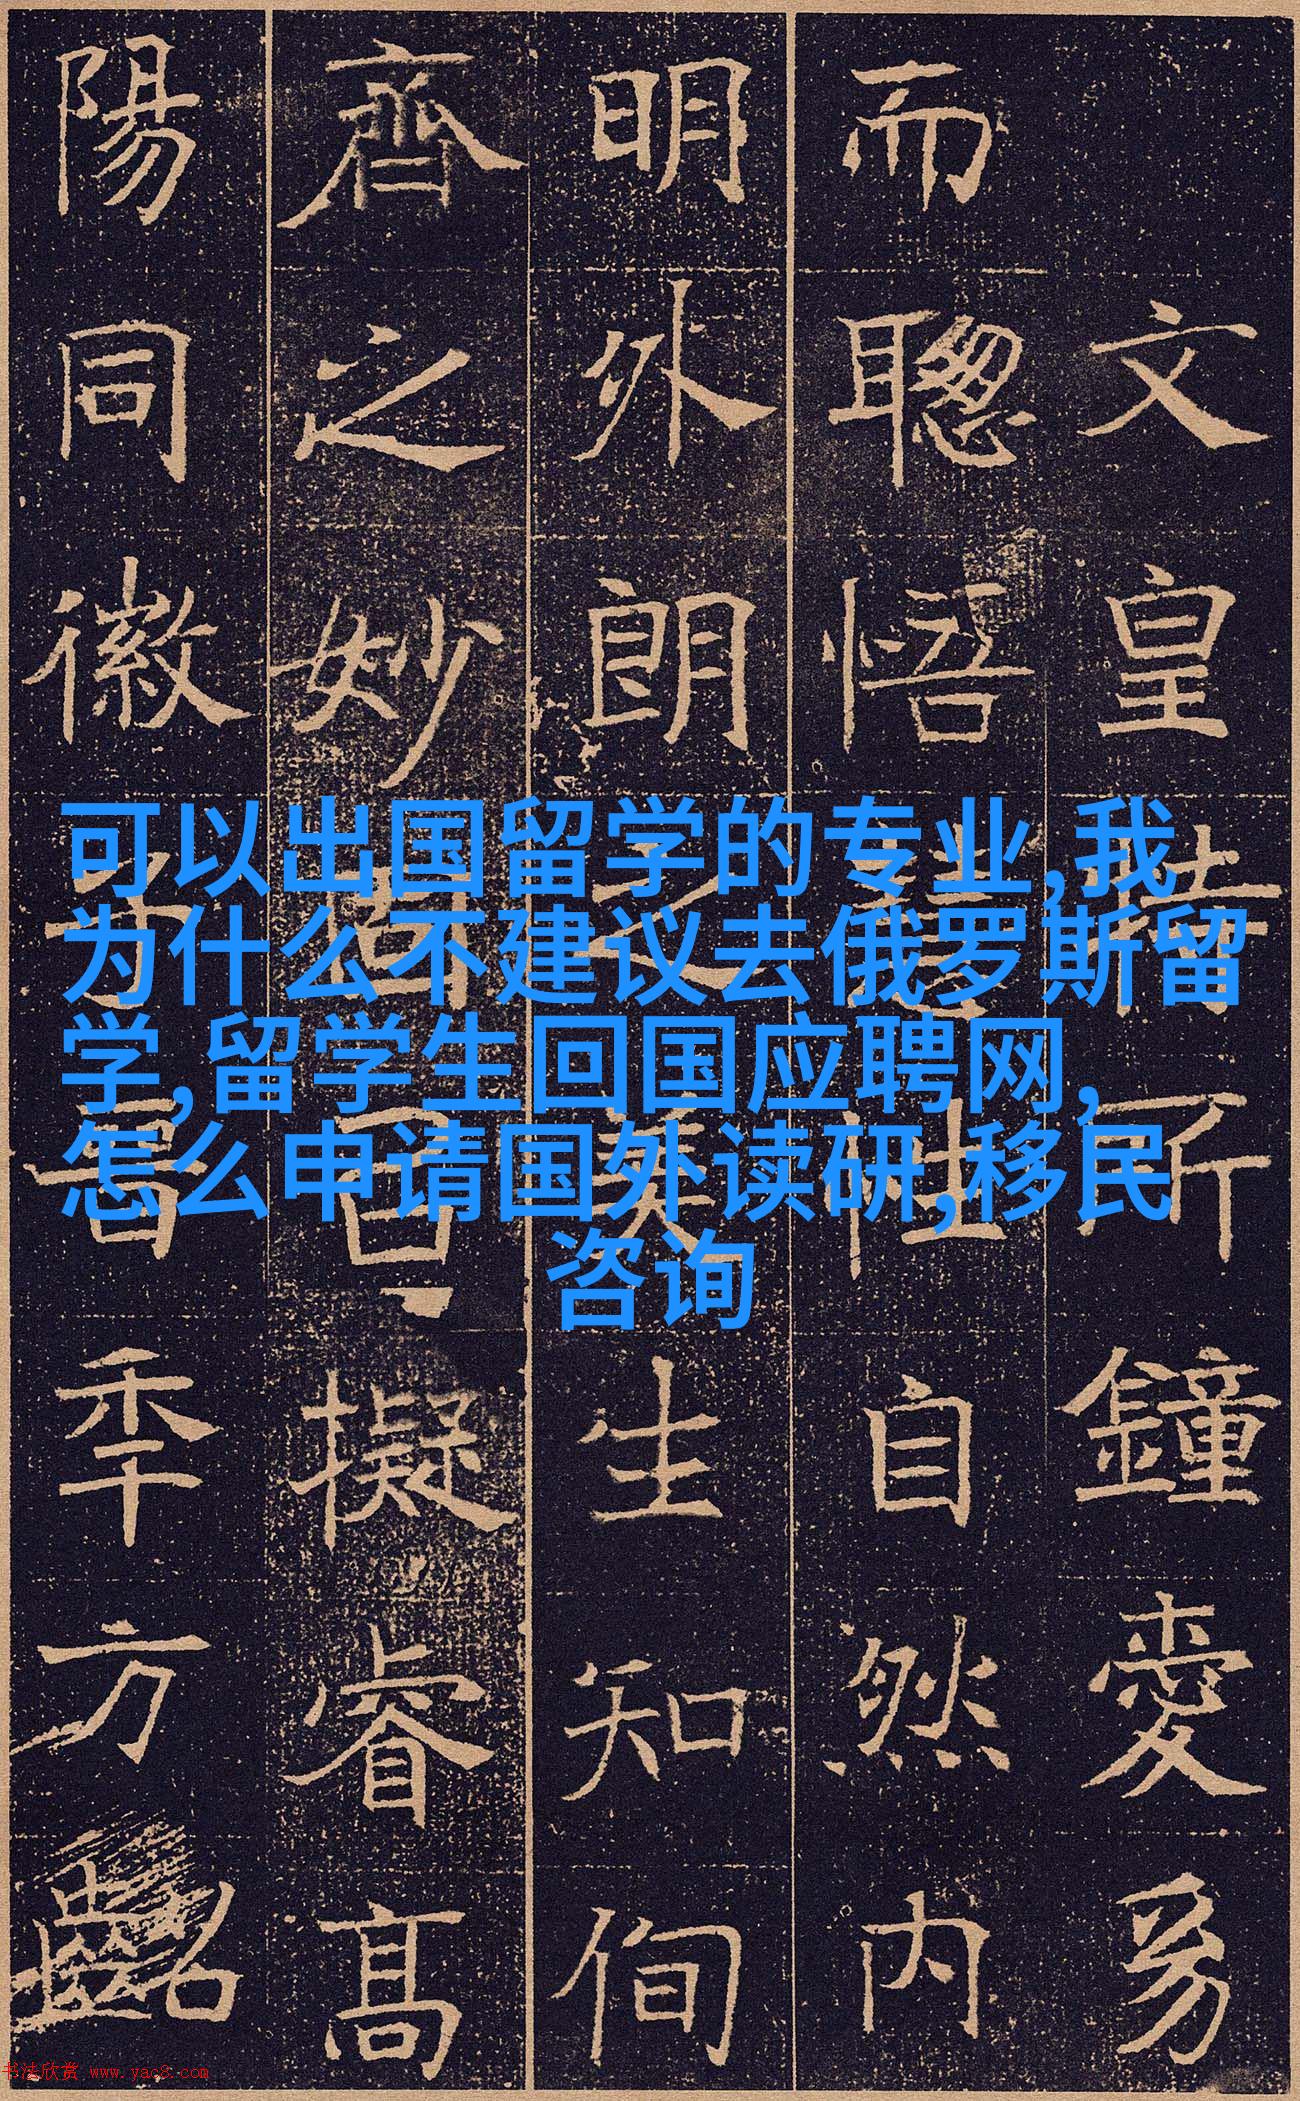 可以出国留学的专业,我
为什么不建议去俄罗斯留
学,留学生回国应聘网,
怎么申请国外读研,移民
咨询
文皇特所鐘愛
而聰悟 性自然内
明外朗之美生知侚
齊之妙 日擬睿高
陽同徽 晉季方齠
书法欣赏 www.yac8.com